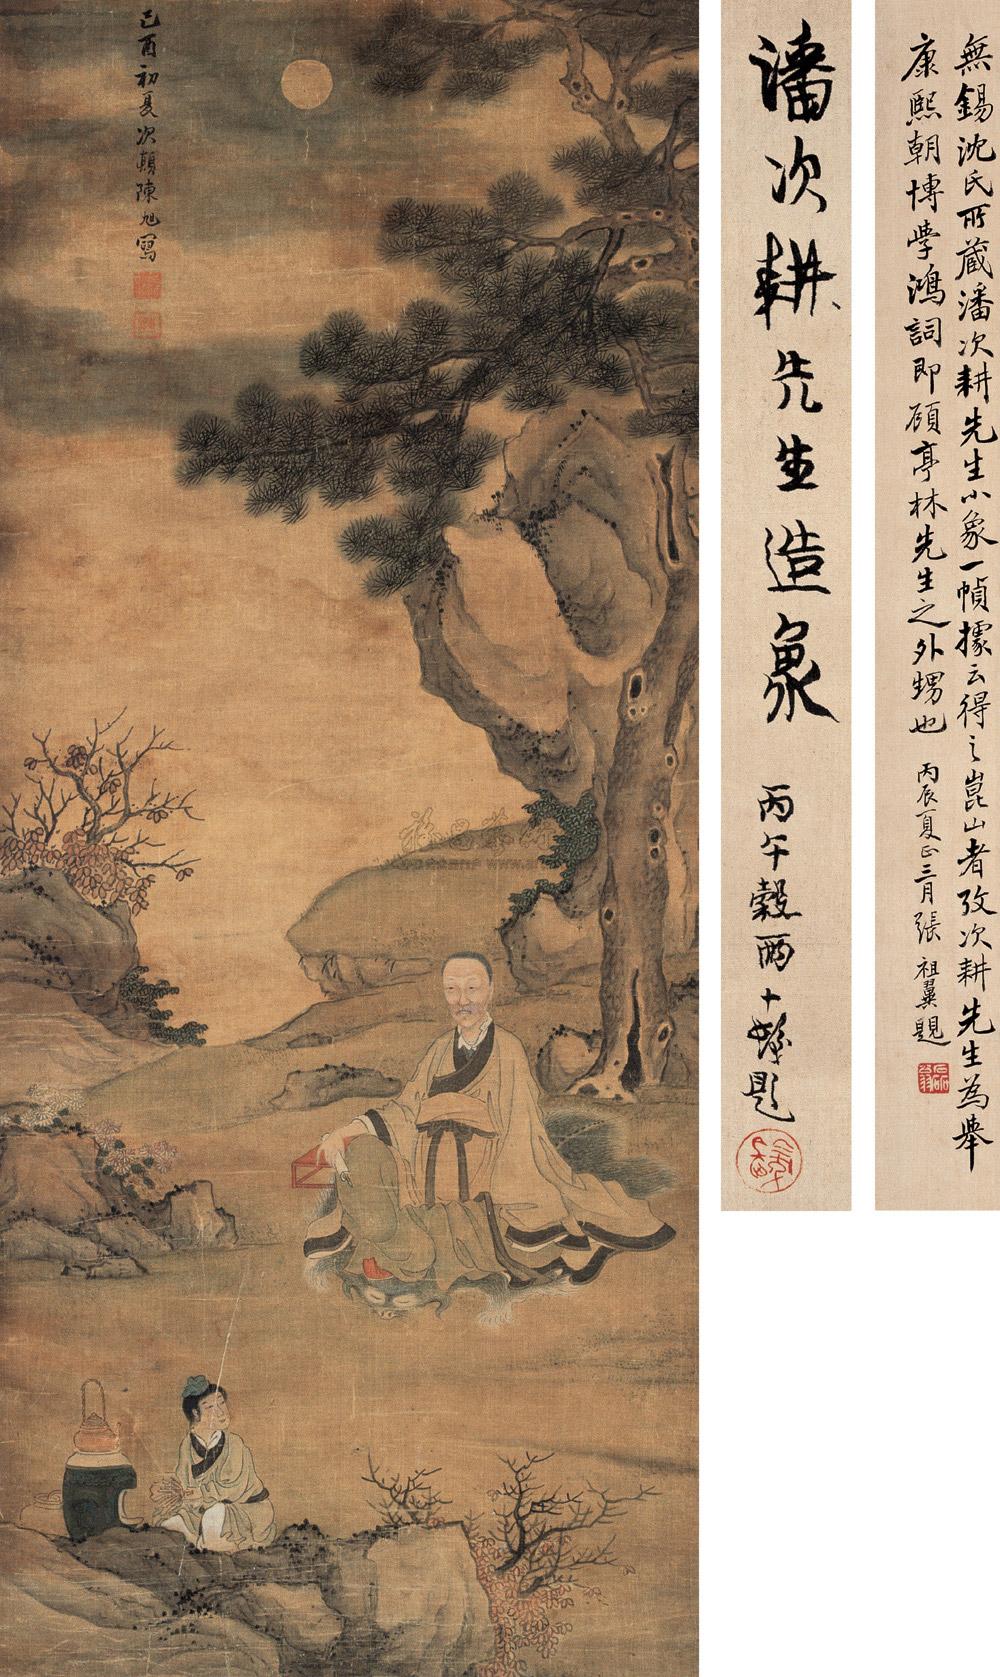 無錫沈氏所藏潘次耕先生小象一幀據云得之崑山者攷次耕先生為舉
康熙朝博學鴻詞即顧亭林先生之外甥也
丙辰夏正三月張祖翼題
潘次耕先生造象
丙午穀雨十髮題
己酉初夏次頫陳旭寫